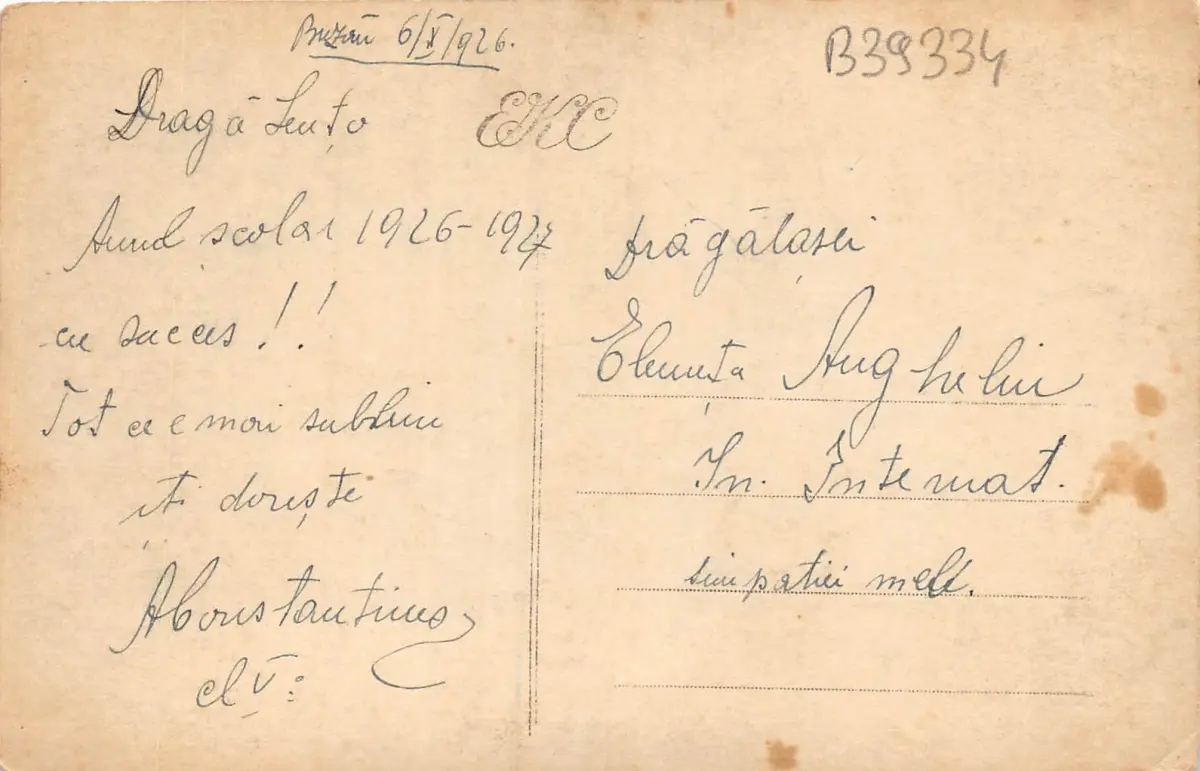 Buzău 6/X/1926.
B39334
Dragă Lențo
EKC
Anul școlar 1926-1927
cu succes!!
Tot ce e mai sublim
iți dorește
AConstantines
cl V:
Drăgălașei
Elenuța Anghelin
In. Internat.
simpatiei mele.